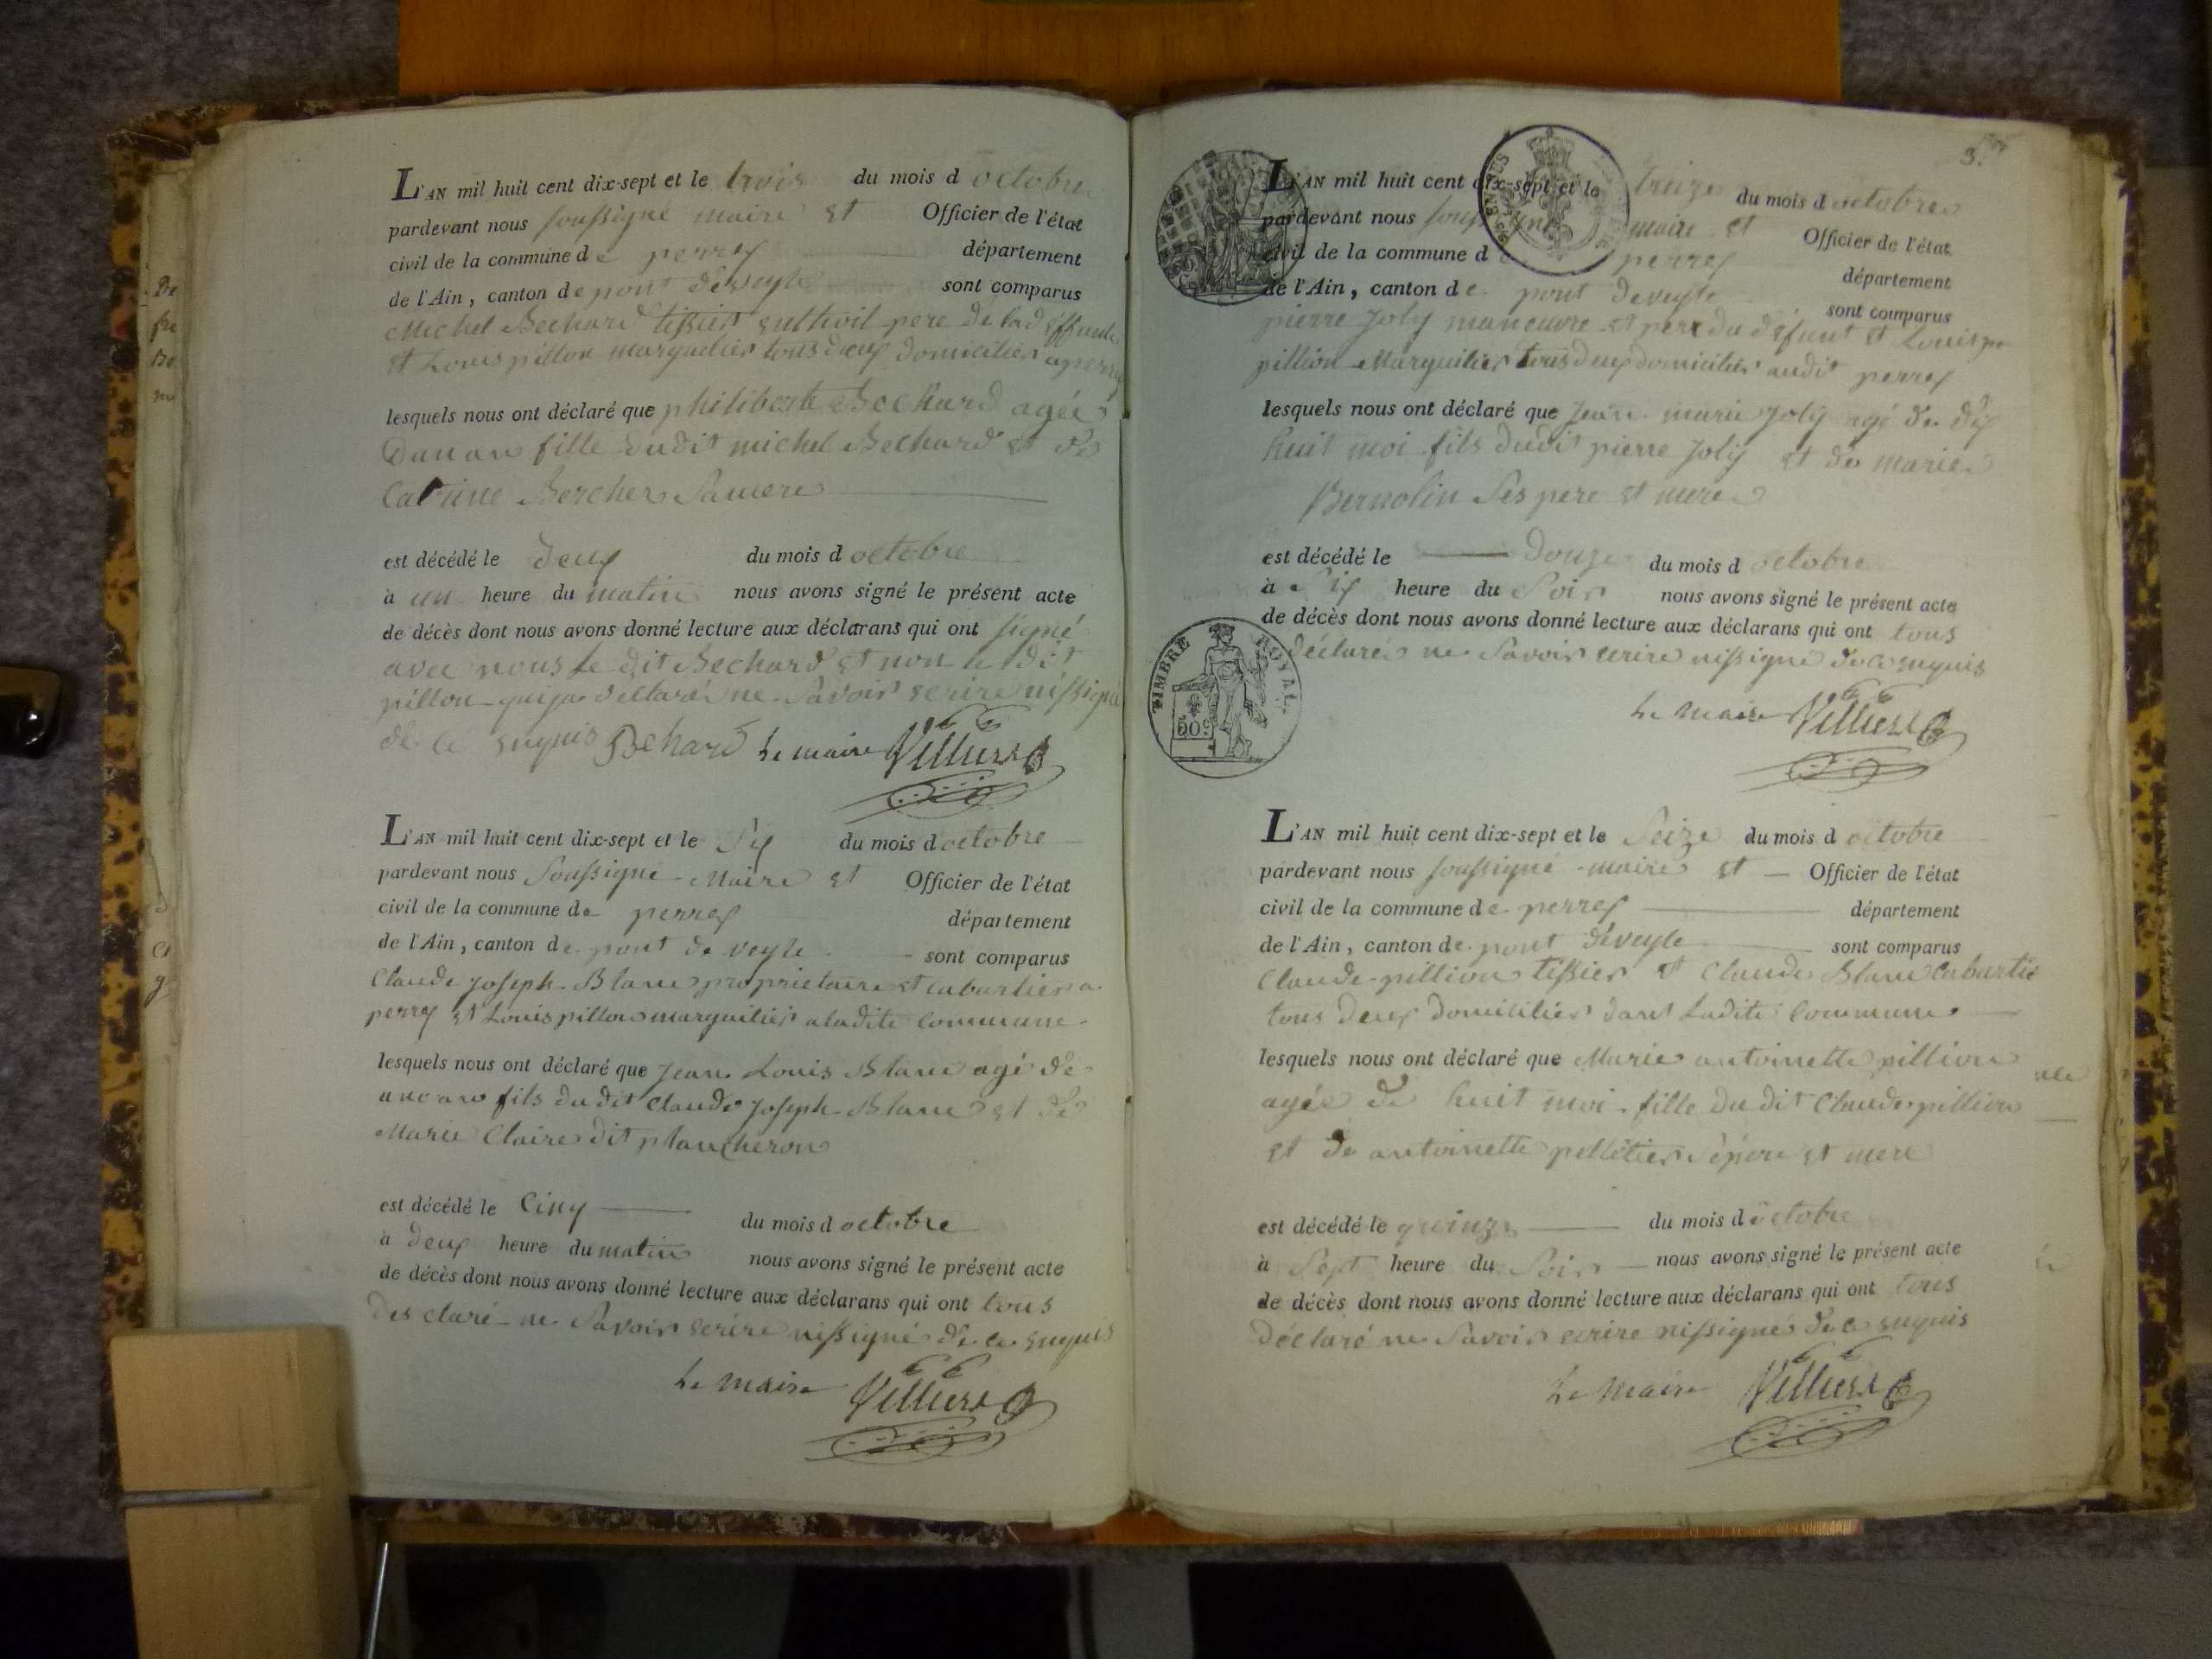 L'AN mil huit cent dix-sept et le trois du mois d octobre
pardevant nous soussigné maire et Officier de l'état
civil de la commune de perrex département
de l'Ain, canton de pont deveyle sont comparus
Michel Bechard tissier pere de lad
et Louis pillon marguilier tous deux domicilier a perrex
lesquels nous ont déclaré que philiberte Bechard agée
Dun an fille dudit michel Bechard et de
Catrine Bercher sa mere
est décédé le deux du mois d octobre
à un heure du matin nous avons signé le présent acte
de décès dont nous avons donné lecture aux déclarans qui ont signé
avec nous le dit Bechard et non le dit
pillon qui a declaré ne savoir serire nissigné
de ce enquis Bchard Le maire Villierd
L'AN mil huit cent dix-sept et le six du mois d octobre
pardevant nous Soussigné Maire et Officier de l'état
civil de la commune de perrex département
de l'Ain, canton de pont de veyle sont comparus
Claude Joseph Blanc proprietaire et cabartier a
perrex et Louis pillon marguilier a ladite Commune
lesquels nous ont déclaré que Jean Louis Blanc agé de
un an fils du dit Claude Joseph Blanc et de
Marie Claire dit plancheron
est décédé le Cinq du mois d octobre
à deux heure du matin nous avons signé le présent acte
de décès dont nous avons donné lecture aux déclarans qui ont tous
des claré ne savoir serire nissigné de ce enquis
Le maire Villierd
3.
L'AN mil huit cent dix-sept et le treize du mois d octobre
pardevant nous soussigné maire et Officier de l'état
civil de la commune de perrex département
de l'Ain, canton de pont deveyle sont comparus
pierre Joly maneuvre et pere du défunt et Louis
pillion Marguilier tous deux domicilier audit perrex
lesquels nous ont déclaré que Jean marie Joly agé de dix
huit moi fils dudit pierre Joly et de marie
Bernolin ses pere et mere
est décédé le Douze du mois d octobre
à six heure du soir nous avons signé le présent acte
de décès dont nous avons donné lecture aux déclarans qui ont tous
déclaré ne savoir serire nissigné de ce enquis
TIMBRE ROYAL.
50c
Le maire Villierd
L'AN mil huit cent dix-sept et le Seize du mois d octobre
pardevant nous soussigné maire et Officier de l'état
civil de la commune de perrex département
de l'Ain, canton de pont deveyle sont comparus
Claude pillion tissier et Claude Blanc Cabartie
tous deux domicilier dans Ladite Commune
lesquels nous ont déclaré que Marie antoinette pillion
agée de huit moi fille du dit Claude pillion
et de antoinette pelletier sé pere et mere
est décédé le quinze du mois d octobre
à Sept heure du soir nous avons signé le présent acte
de décès dont nous avons donné lecture aux déclarans qui ont tous
déclaré ne savoir serire nissigné de ce enquis
Le maire Villierd